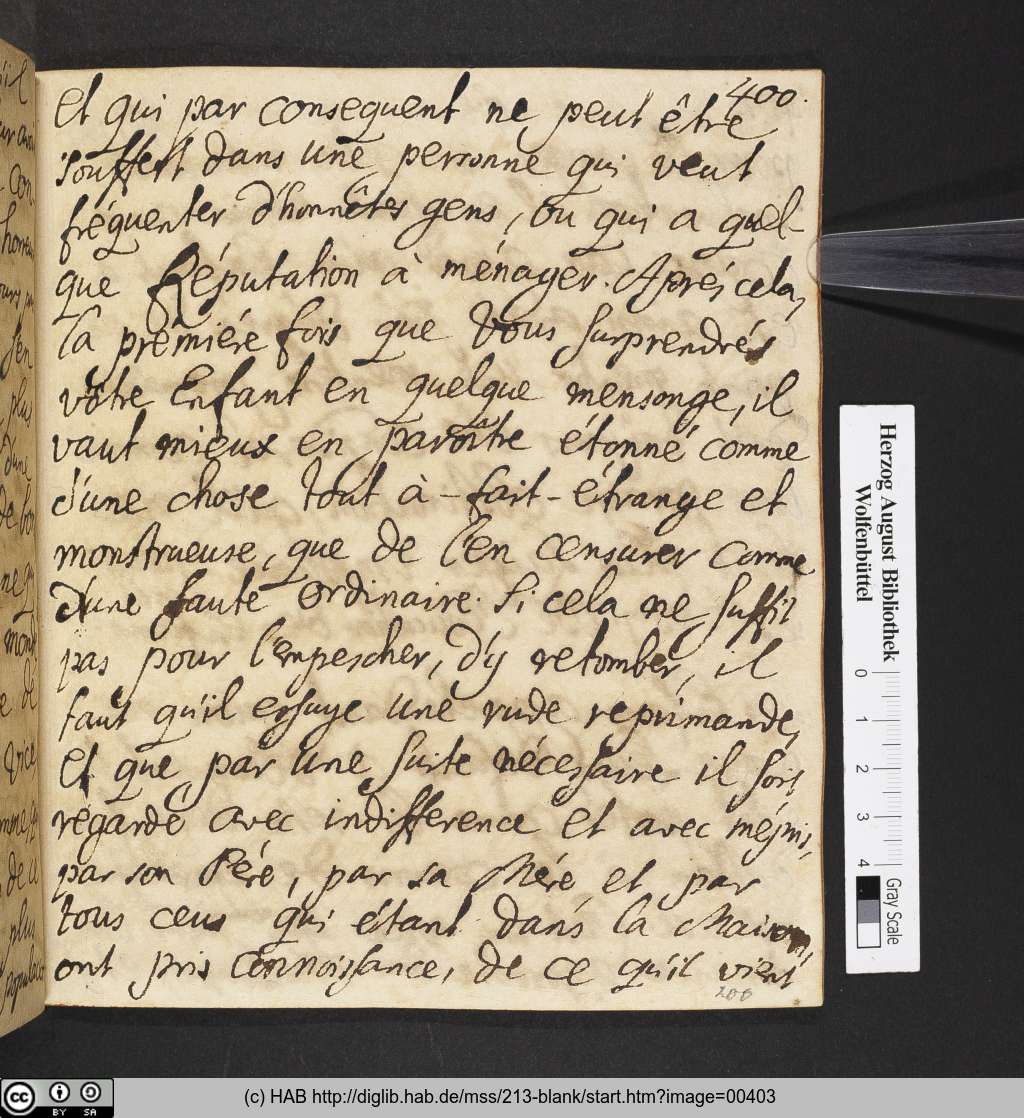 400.
et qui par consequent ne peut être
souffert dans une personne qui veut
fréquenter d'honnêtes gens, ou qui a quel-
que Réputation à ménager. Aprés cela,
la prémiére fois que vous surprendrés
vôtre Enfant en quelque mensonge, il
vaut mieux en paroître étonné comme
d'une chose tout à-fait-étrange et
monstrueuse, que de l'en censurer comme
d'une faute ordinaire. Si cela ne suffit
pas pour l'empescher, d'y retomber, il
faut qu'il essuye une rude reprimande,
et que par une suite nécessaire il soit
régardé avec indifference et avec mépris,
par son Pére, par sa Mére et par
tous ceus qui étant dans la Maison,
ont pris connoissance, de ce qu'il vient
200
Herzog August Bibliothek
Wolfenbüttel
0 1 2 3 4
Gray Scale
cc BY SA
(c) HAB http://diglib.hab.de/mss/213-blank/start.htm?image=00403